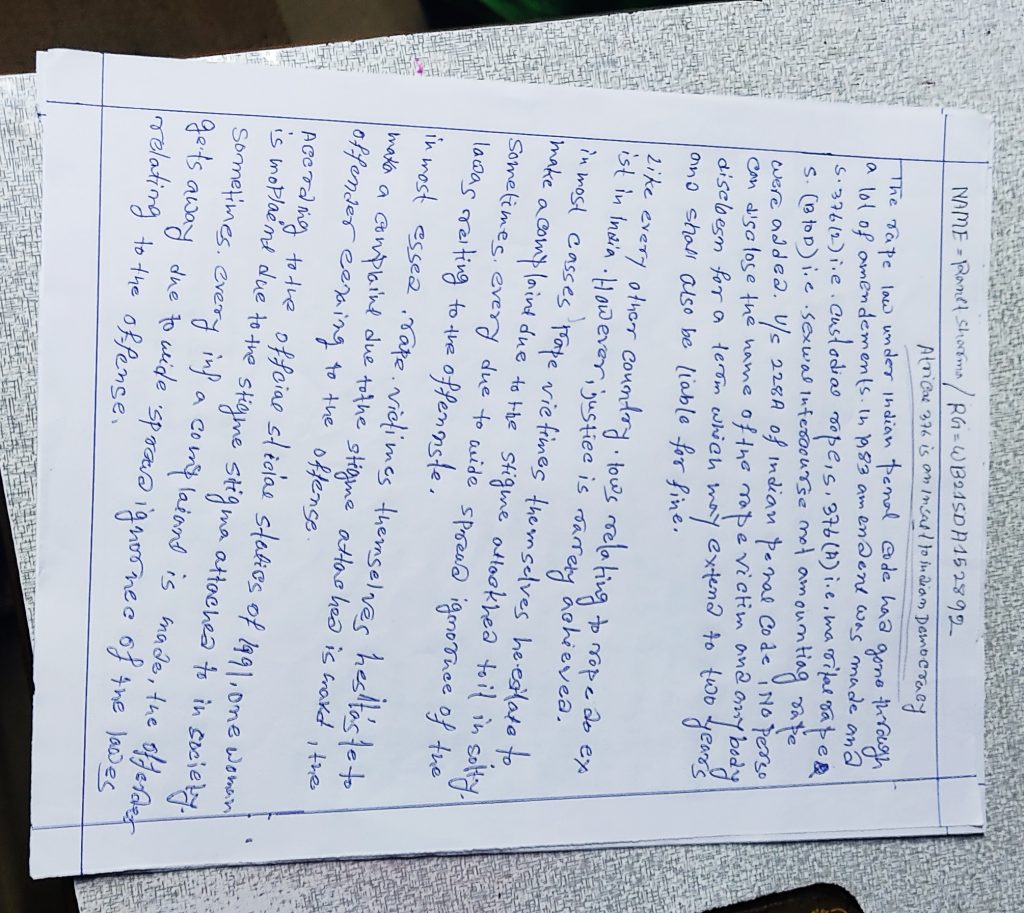 NAME = Ronit Sharma / RGi = WB21SDA152892
Atricle 376 is an insult to indian Democracy
The rape law under indian penal code had gone through
a lot of amendements. in 1983 amendent was made and
S.376(2) i.e. custodial rape, S. 376(A) i.e. marital rape &
S. (B to D) i.e. sexual interrcourse not amounting rape
were added. U/s 228A of indian penal code, No perso
can disclose the name of the rope victim and anybody
discloesn for a term which may extend to two years
and shall also be liable for fine.
Like every other country. laws rrelating to rope do ex
ist in India. However, justice is rarrely achieved.
in most casses rape victimes themselves hesitate to
make a complaind due to the stigme attackhed to it in soity.
Sometimes, every due to wide spread ignorance of the
laws relting to the offenste.
in most esses, rape victims themselves hesitaste to
make a complaind due tothe stigme attached is mard, the
offender cerning to the offense.
According to the offcial slidiae statics of 1991, one woman
is mopleind due to the stigme stigma attached to in society.
Sometimes. every inf a complaiend is made, the offender
gets away due to wide spread ignornee of the lawes
rrelating to the offense.